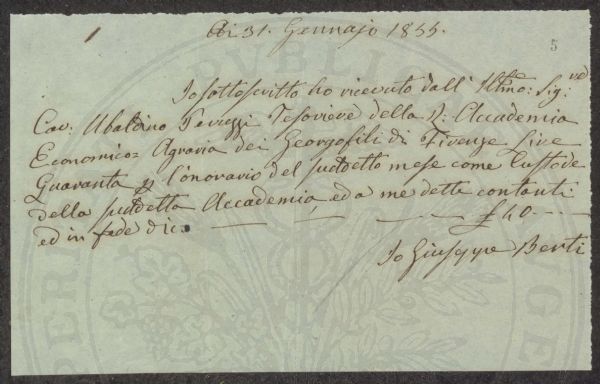 1
5
Adi 31. Gennajo 1855.
Io sottoscritto ho ricevuto dall' Illmo: Sig:
Cav: Ubaldino Peruzzi Tesoriere della R: Accademia
Economico= Agraria dei Georgofili di Firenze Lire
Quaranta p l'onorario del suddetto mese come Custode
della suddetta Accademia, ed a me dette contanti
ed in fede dico — — — £ 40 - - -
Io Giuseppe Berti
PUBLICA